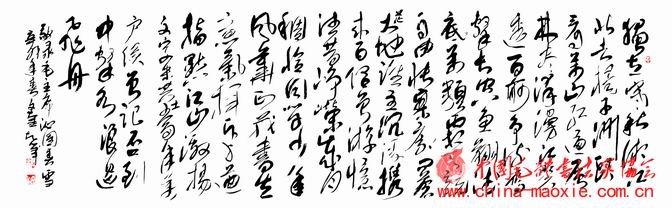 独立寒秋湘江
北去橘子洲头
看万山红遍层
林尽染漫江碧
透百舸争流鹰
击长空鱼翔浅
底万类霜天竞
自由怅寥廓问苍
茫大地谁主沉浮携
来百侣曾游忆
往昔峥嵘岁月
稠恰同学少年
风华正茂书生
意气挥斥方遒
指点江山激扬
文字粪土当年万
户侯曾记否到
中击水浪遏
飞舟
敬录毛主席沁园春雪
中国毛体书法家协会
www.china-maoxie.com.cn